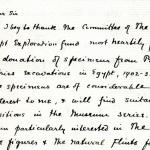 Dear Sir
I beg to thank the Committee of the
pt Exploration fund most heartily f
donation of specimens from P
ries excavations in Egypt, 1902-3.
e specimens are of considerable
terest to me, & will find suitab
ositions in the Museum series.
m particularly interested in the
figures & the natural flints fo